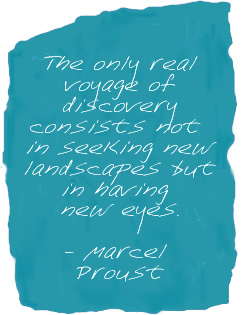 The only real
voyage of
discovery
consists not
in seeking new
landscapes but
in having
new eyes.
- Marcel
Proust